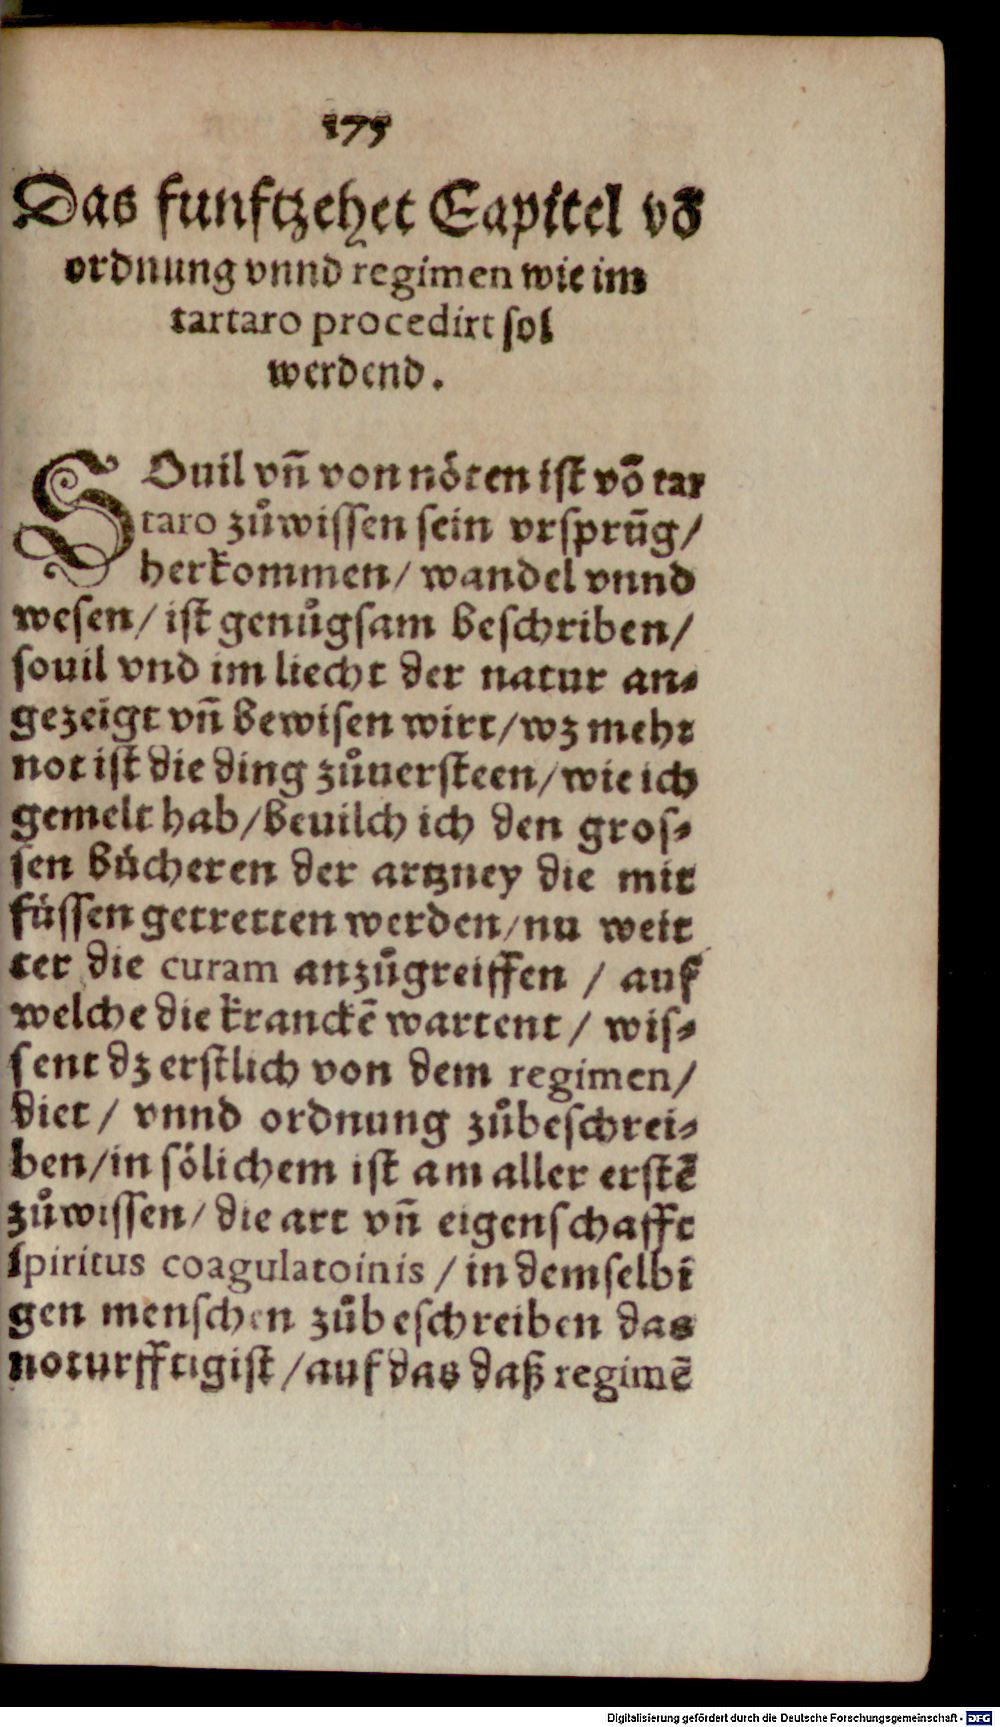 175
Das funftzehet Capitel võ
ordnung vnnd regimen wie im
tartaro procedirt sol
werdend.
SOuil vñ von nöten ist võ tar
taro zůwissen sein vrsprũg/
herkommen/ wandel vnnd
wesen/ ist genůgsam beschriben/
souil vnd im liecht der natur an⸗
gezeigt vñ bewisen wirt/wz mehr
not ist die ding zůuersteen/wie ich
gemelt hab/beuilch ich den gros⸗
sen bücheren der artzney die mit
füssen getretten werden/nu weit
ter die curam anzůgreiffen / auf
welche die kranckẽ wartent / wis⸗
sent dz erstlich von dem regimen/
diet / vnnd ordnung zůbeschrei⸗
ben/in sölichem ist am aller erstẽ
zůwissen/ die art vñ eigenschafft
spiritus coagulatoinis / in demselbi
gen menschen zůbeschreiben das
noturfftigist /auf das daß regimẽ
Digitalisierung gefördert durch die Deutsche Forschungsgemeinschaft - DFG